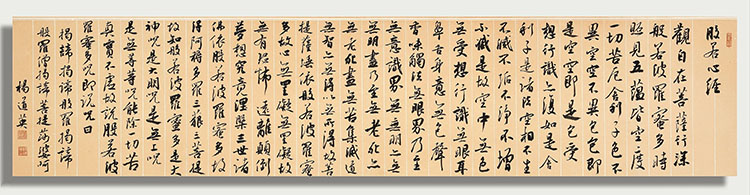 般若心經
觀自在菩薩行深
般若波羅蜜多時
照見五蘊皆空度
一切苦厄舍利子色不
異空空不異色色即
是空空即是色受
想行識亦復如是舍
利子是諸法空相不生
不滅不垢不淨不增
不減是故空中無色
無受想行識無眼耳
鼻舌身意無色聲
香味觸法無眼界乃至
無意識界無無明亦
無無明盡乃至無老死亦
無老死盡無苦集滅道
無智亦無得以無所得故菩
提薩埵依般若波羅蜜
多故心無罣礙無罣礙故
無有恐怖遠離顛倒
夢想究竟涅槃三世諸
佛依般若波羅蜜多故
得阿耨多羅三藐三菩提
故知般若波羅蜜多是大
神咒是大明咒是無上咒
是無等等咒能除一切苦
真實不虛故說般若波
羅蜜多咒即說咒曰
揭諦揭諦般羅揭諦
般羅僧揭諦菩提薩婆訶
楊道英